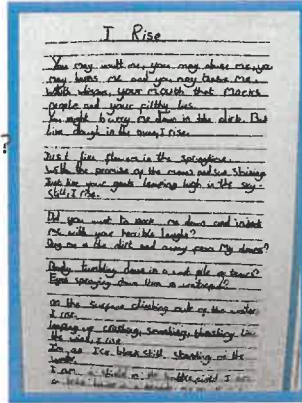 I Rise
You may insult me, you may abuse me, you
may me and you may tease me.
your mouth that mocks
people and your filthy lies.
You might bury me down in the dirt. But
like dough in the oven, I rise.
Just like flowers in the springtime.
With the promise of the moons and sun shining
Just like your goals leaping high in the sky-
Still, I rise.
Did you want to me down and
me with your horrible laughs?
me in the dirt and away from My dance?
tumbling down in a pile of tears?
Eyes spraying down like a waterspout?
On the surface climbing out of the water
I rise.
leaping up crashing, like
the wind, I rise
I'm an Ice block still standing in the
water.
I am a in the I